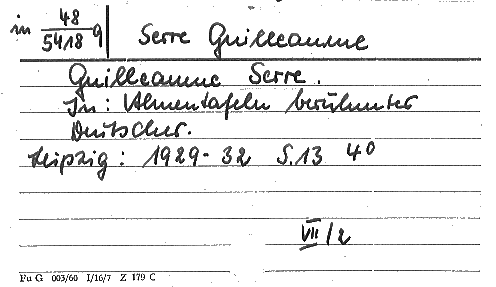 in 48/5418 q Serre Guilleaume
Guilleaume Serre.
In: Ahnentafeln berühmter
Deutscher.
Leipzig: 1929-32 S.13 4°
VII/2
Fu G 003/60 I/16/7 Z 179 C